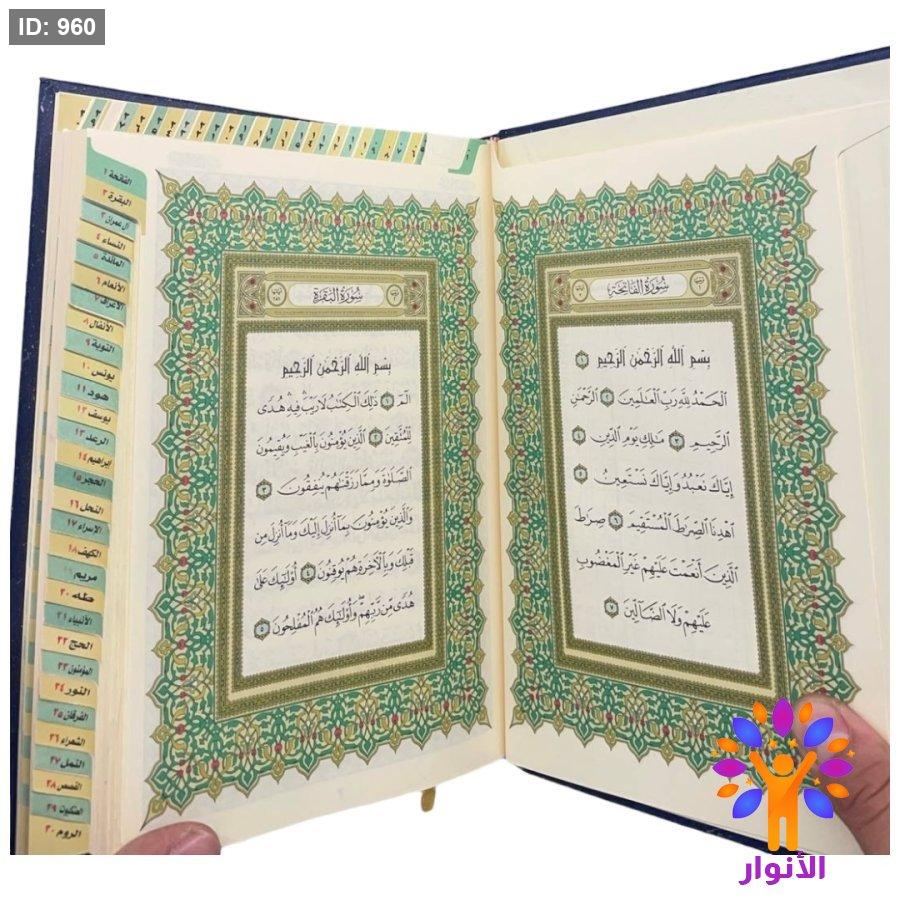 ID: 960
سُورَةُ الفَاتِحَةِ
بِسْمِ ٱللَّهِ ٱلرَّحْمَٰنِ ٱلرَّحِيمِ ١
ٱلْحَمْدُ لِلَّهِ رَبِّ ٱلْعَٰلَمِينَ ٢ ٱلرَّحْمَٰنِ
ٱلرَّحِيمِ ٣ مَٰلِكِ يَوْمِ ٱلدِّينِ ٤
إِيَّاكَ نَعْبُدُ وَإِيَّاكَ نَسْتَعِينُ ٥
ٱهْدِنَا ٱلصِّرَٰطَ ٱلْمُسْتَقِيمَ ٦ صِرَٰطَ
ٱلَّذِينَ أَنْعَمْتَ عَلَيْهِمْ غَيْرِ ٱلْمَغْضُوبِ
عَلَيْهِمْ وَلَا ٱلضَّآلِّينَ ٧
سُورَةُ البَقَرَةِ
بِسْمِ ٱللَّهِ ٱلرَّحْمَٰنِ ٱلرَّحِيمِ
الٓمٓ ١ ذَٰلِكَ ٱلْكِتَٰبُ لَا رَيْبَ ۛ فِيهِ ۛ هُدًى
لِّلْمُتَّقِينَ ٢ ٱلَّذِينَ يُؤْمِنُونَ بِٱلْغَيْبِ وَيُقِيمُونَ
ٱلصَّلَوٰةَ وَمِمَّا رَزَقْنَٰهُمْ يُنفِقُونَ ٣
وَٱلَّذِينَ يُؤْمِنُونَ بِمَآ أُنزِلَ إِلَيْكَ وَمَآ أُنزِلَ مِن
قَبْلِكَ وَبِٱلْأٓخِرَةِ هُمْ يُوقِنُونَ ٤ أُو۟لَٰٓئِكَ عَلَىٰ
هُدًى مِّن رَّبِّهِمْ ۖ وَأُو۟لَٰٓئِكَ هُمُ ٱلْمُفْلِحُونَ ٥
الفاتحة ١
البقرة ٢
آل عمران ٣
النساء ٤
المائدة ٥
الأنعام ٦
الأعراف ٧
الأنفال ٨
التوبة ٩
يونس ١٠
هود ١١
يوسف ١٢
الرعد ١٣
إبراهيم ١٤
الحجر ١٥
النحل ١٦
الاسراء ١٧
الكهف ١٨
مريم ١٩
طه ٢٠
الأنبياء ٢١
الحج ٢٢
المؤمنون ٢٣
النور ٢٤
الفرقان ٢٥
الشعراء ٢٦
النمل ٢٧
القصص ٢٨
العنكبوت ٢٩
الروم ٣٠
الأنوار